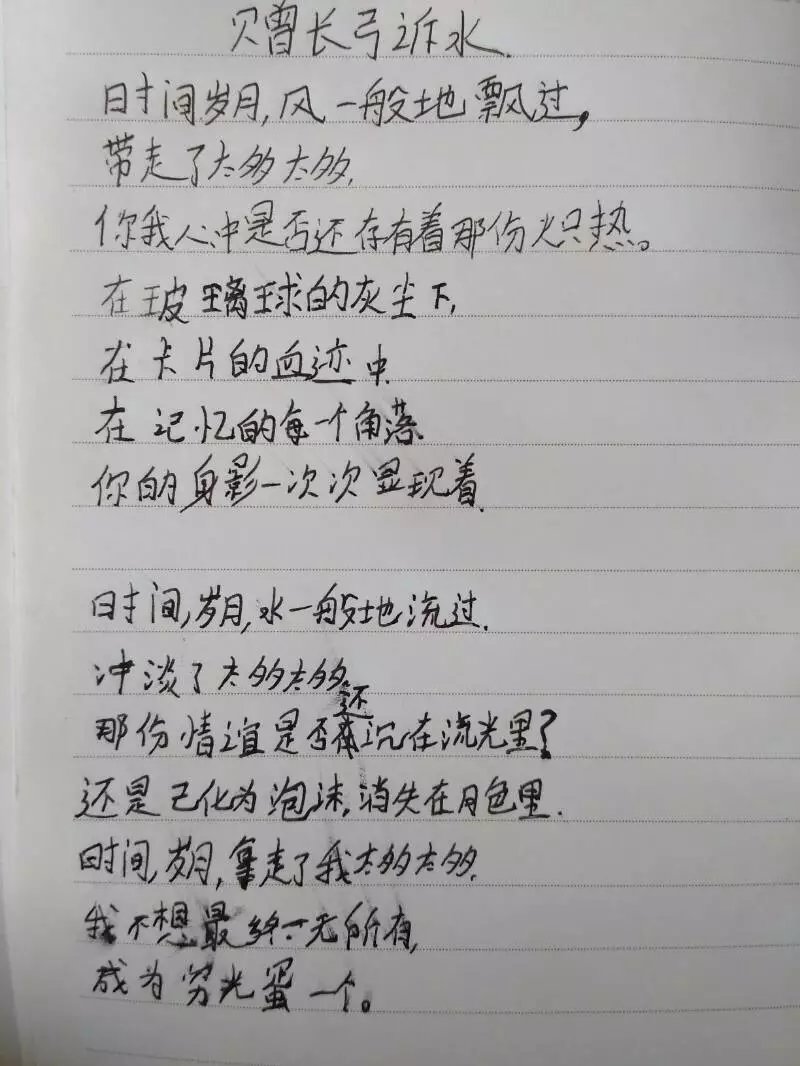 赠张泝
时间岁月,风一般地飘过,
带走了太多太多,
你我心中是否还存有着那份炽热。
在玻璃球的灰尘下,
在卡片的血迹中,
在记忆的每一个角落,
你的身影一次次显现着.
时间,岁月,水一般地流过.
冲淡了太多太多.
那份情谊是否还沉在流光里?
还是已化为泡沫,消失在月色里.
时间,岁月,拿走了我太多太多.
我不想最终一无所有,
成为穷光蛋一个。